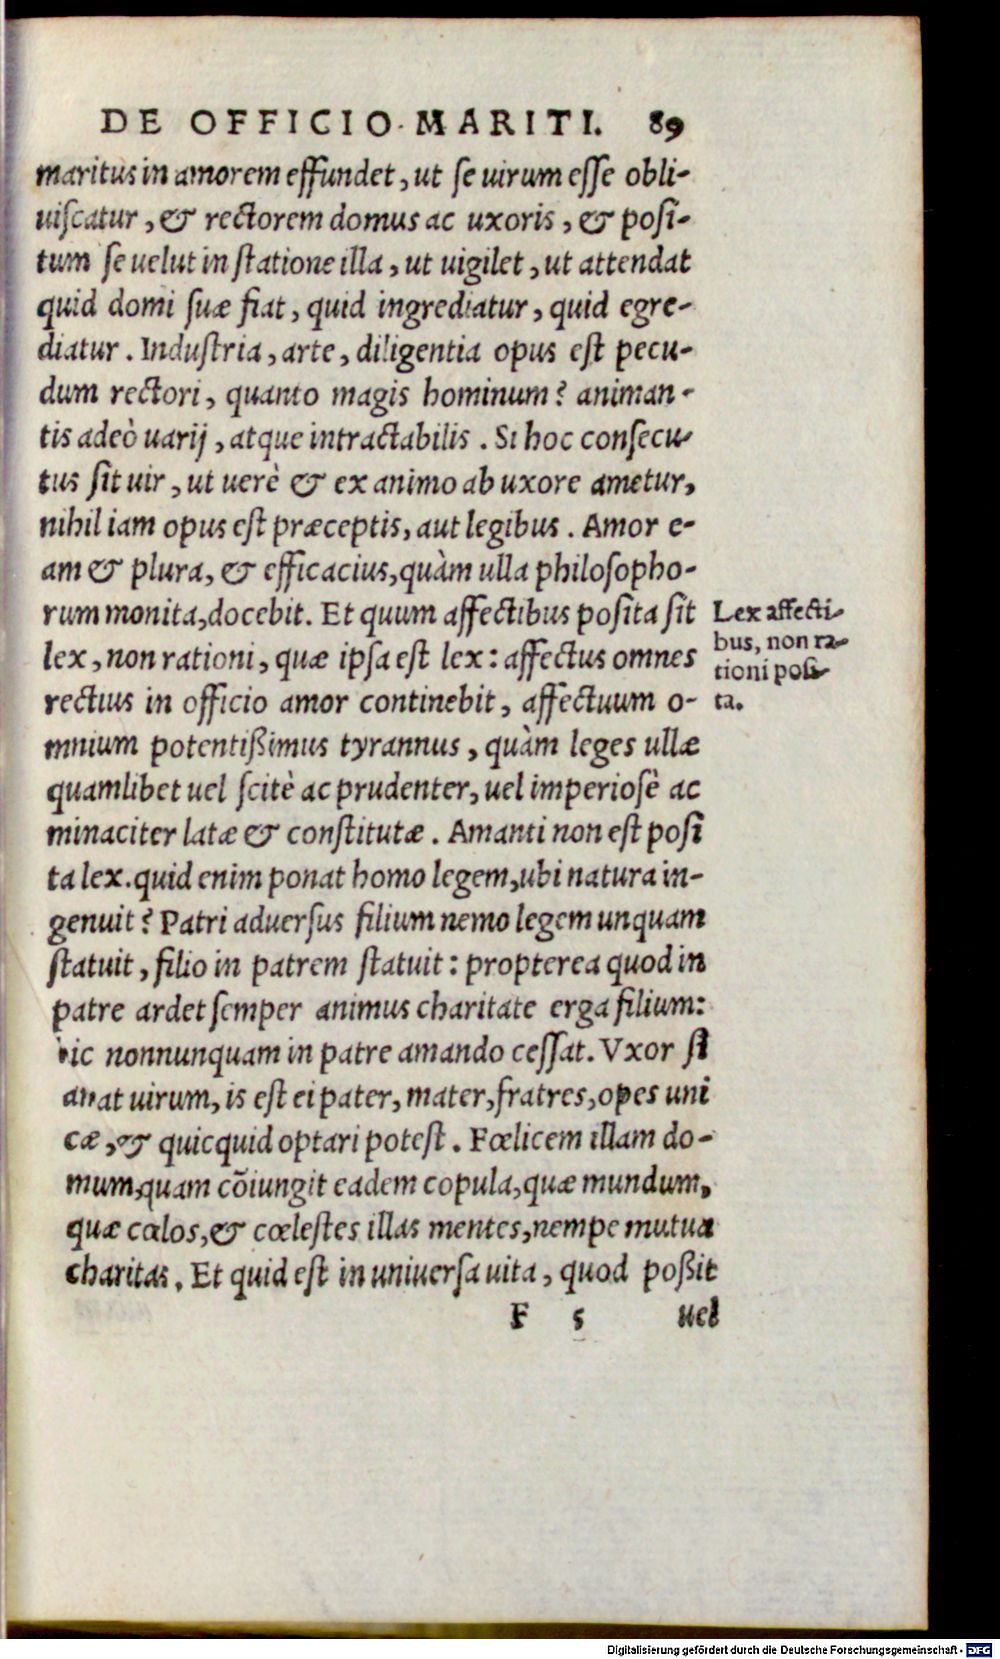 DE OFFICIO MARITI. 89
maritus in amorem effundet, ut se uirum esse obli-
uiscatur, & rectorem domus ac uxoris, & posi-
tum se uelut in statione illa, ut uigilet, ut attendat
quid domi suæ fiat, quid ingrediatur, quid egre-
diatur. Industria, arte, diligentia opus est pecu-
dum rectori, quanto magis hominum? animan-
tis adeò uarij, atque intractabilis. Si hoc consecu-
tus sit uir, ut uerè & ex animo ab uxore ametur,
nihil iam opus est præceptis, aut legibus. Amor e-
am & plura, & efficacius, quàm ulla philosopho-
rum monita, docebit. Et quum affectibus posita sit
lex, non rationi, quæ ipsa est lex: affectus omnes
rectius in officio amor continebit, affectuum o-
mnium potentißimus tyrannus, quàm leges ullæ
quamlibet uel scitè ac prudenter, uel imperiosè ac
minaciter latæ & constitutæ. Amanti non est posi
ta lex. quid enim ponat homo legem, ubi natura in-
genuit? Patri aduersus filium nemo legem unquam
statuit, filio in patrem statuit: propterea quod in
patre ardet semper animus charitate erga filium:
hic nonnunquam in patre amando cessat. Vxor si
amat uirum, is est ei pater, mater, fratres, opes uni
cæ, & quicquid optari potest. Fœlicem illam do-
mum, quam cõiungit eadem copula, quæ mundum,
quæ cœlos, & cœlestes illas mentes, nempe mutua
charitas. Et quid est in uniuersa uita, quod poßit
F 5 uel
Lex affecti-
bus, non ra-
tioni posi-
ta.
Digitalisierung gefördert durch die Deutsche Forschungsgemeinschaft - DFG